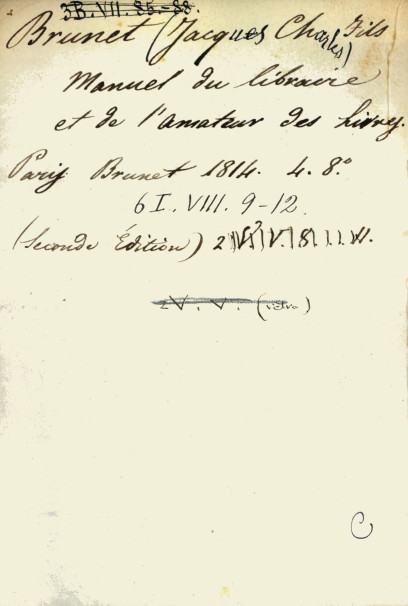 3B.VII.85.-88.
Brunet (Jacques Charles) Fils
Manuel du libraire
et de l'amateur des livres.
Paris Brunet 1814. 4. 8.°
6 I. VIII. 9-12.
(Seconde Édition)
(retro)
C